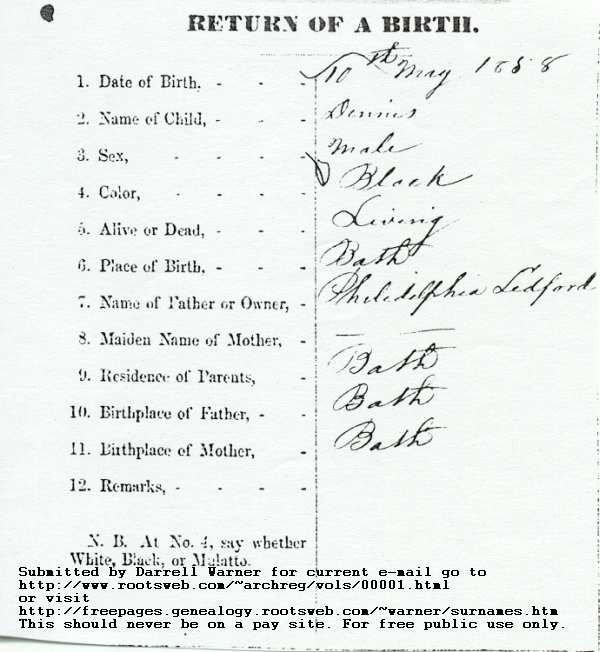 RETURN OF A BIRTH.
1. Date of Birth, - - - 10th May 1858
2. Name of Child, - - - Dennis
3. Sex, - - - - Male
4. Color, - - - - Black
5. Alive or Dead, - - - Living
6. Place of Birth, - - - Bath
7. Name of Father or Owner, - Philidelphia Ledford
8. Maiden Name of Mother, - —
9. Residence of Parents, - Bath
10. Birthplace of Father, - - Bath
11. Birthplace of Mother, - Bath
12. Remarks, - - - -
N. B. At No. 4, say whether
White, Black, or Mulatto.
Submitted by Darrell Warner for current e-mail go to
http://www.rootsweb.com/~archreg/vols/00001.html
or visit
http://freepages.genealogy.rootsweb.com/~warner/surnames.htm
This should never be on a pay site. For free public use only.